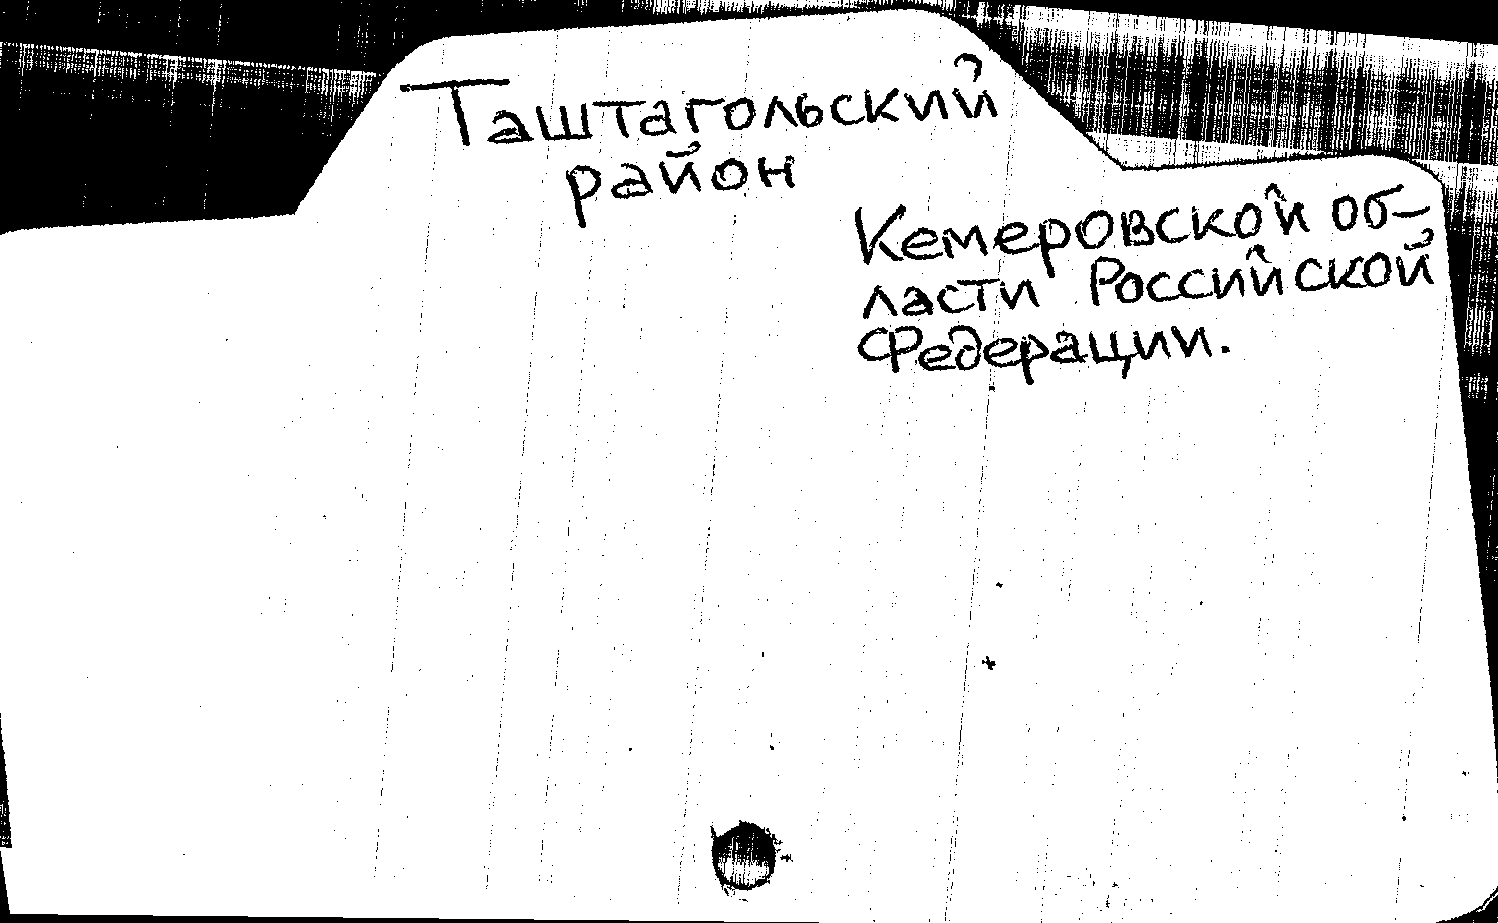 Таштагольский
район
Кемеровской об-
ласти Российской
Федерации.